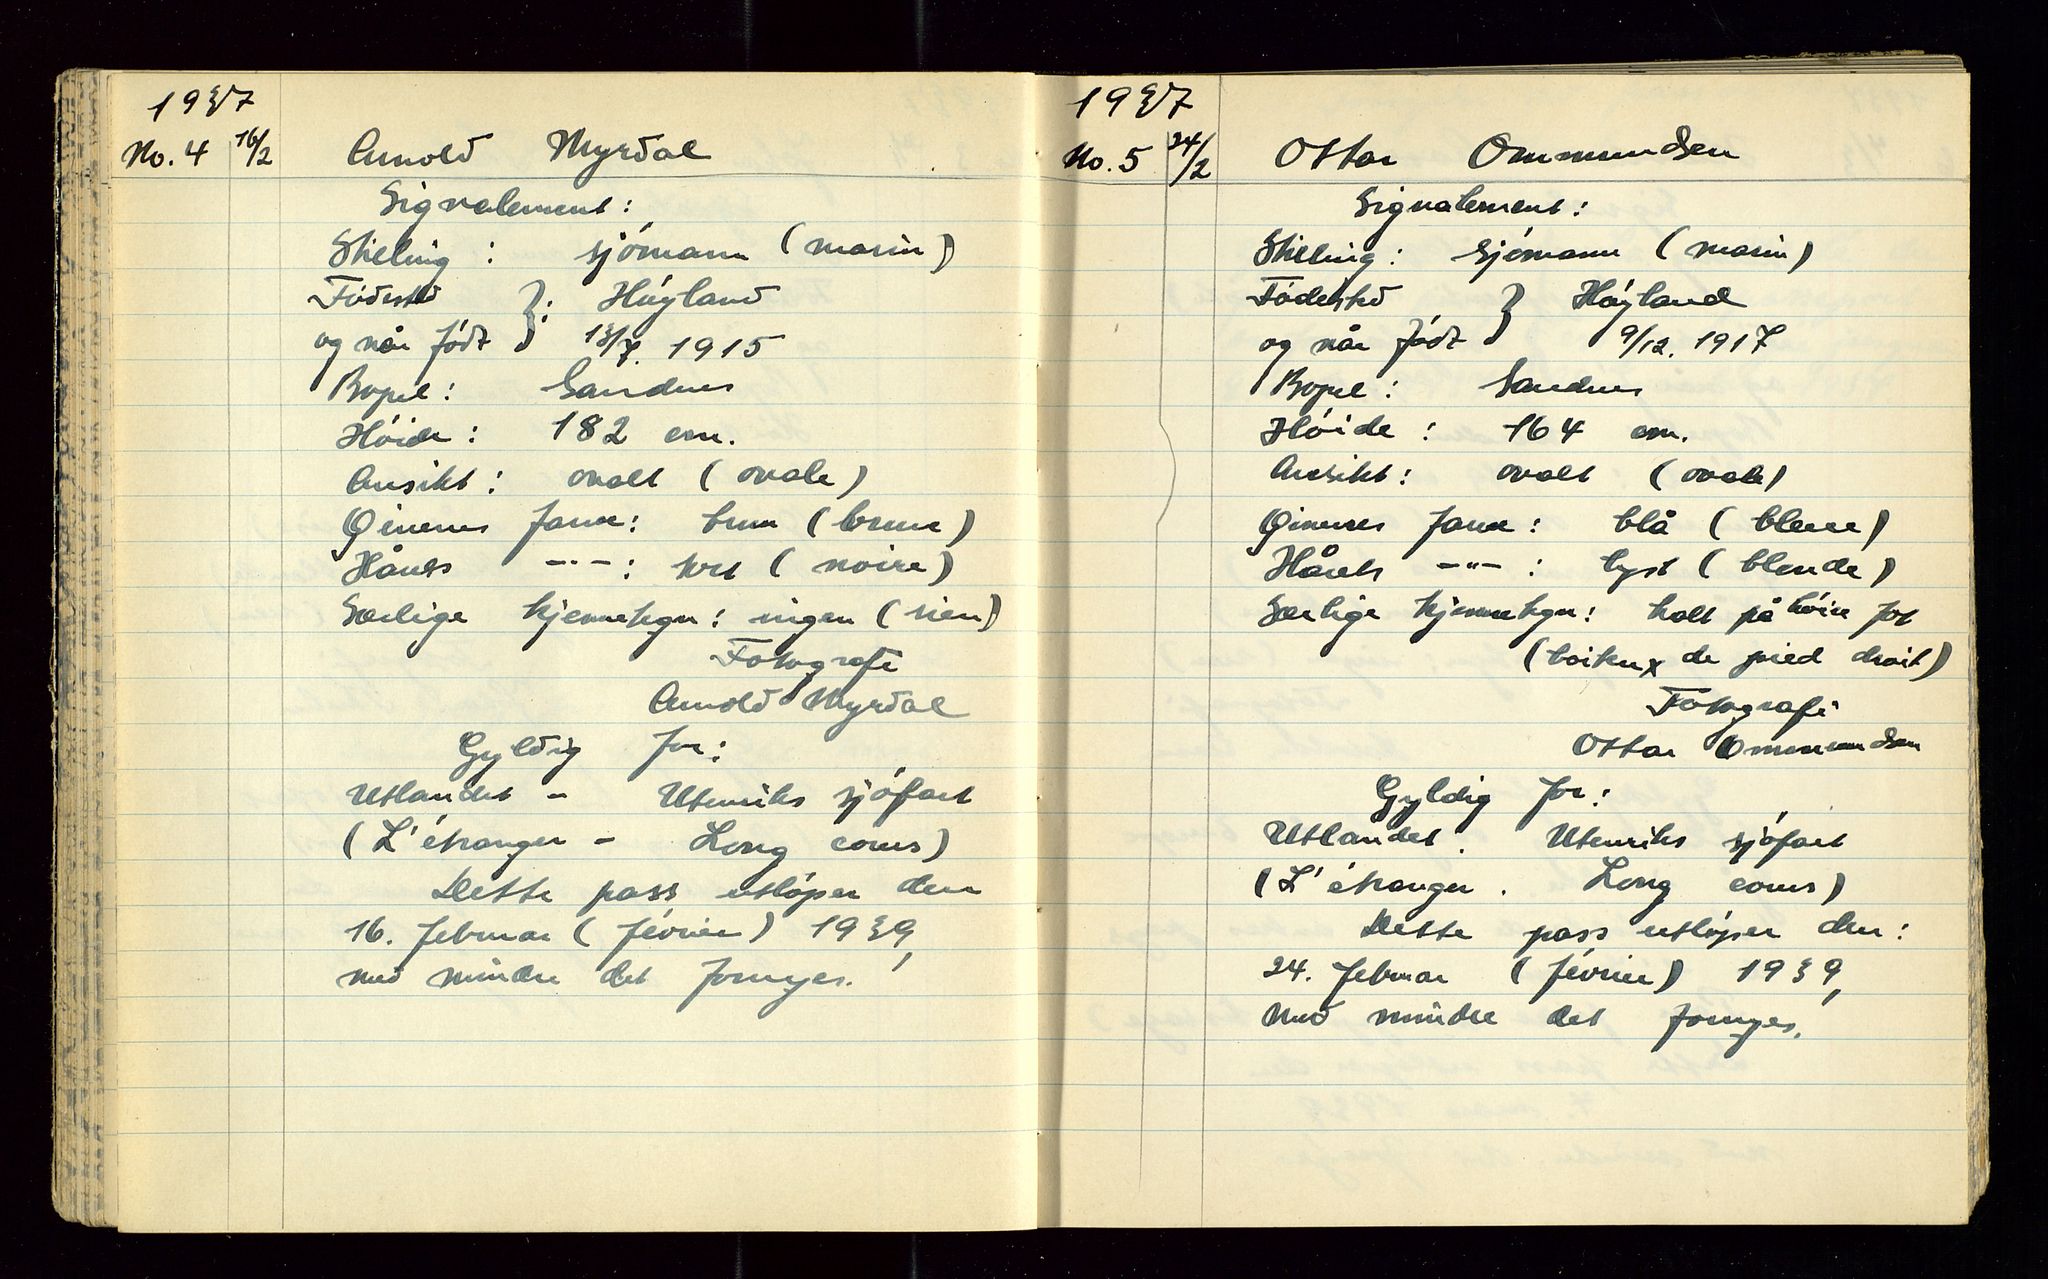 1937
No. 4 16/2 Arnold Myrdal
Signalement:
Stieling : sjómann (marin)
Fódested } : Höyland
og når födt 13/7. 1915
Bopel : Sandnes
Höide : 182 cm.
Ansikt : ovalt (ovale)
Öinenes farve : brun (brune)
Hårets -"- : sort (noire)
Særlige kjennetegn : ingen (rien)
Fotografi
Arnold Myrdal
Gyldig for :
Utlandet - Utenriks sjófart
(L'étranger - Long cours)
Dette pass utlóper den
16. februar (février) 1939,
med mindre det fornyes.
1937
No. 5 24/2 Ottar Ommundsen
Signalement :
Stieling : Sjómann (marin)
Fódested } Höyland
og når födt 9/12. 1917
Bopel : Sandnes
Höide : 164 cm.
Ansikt : ovalt (ovale)
Öinenes farve : blå (bleue)
Hårets -"- : lyst (blonde)
Særlige kjennetegn : halt på höire fot
(boiteux de pied droit)
Fotografi
Ottar Ommundsen
Gyldig for :
Utlandet. Utenriks sjófart
(L'étranger. Long cours)
Dette pass utlóper den :
24. februar (février) 1939,
med mindre det fornyes.